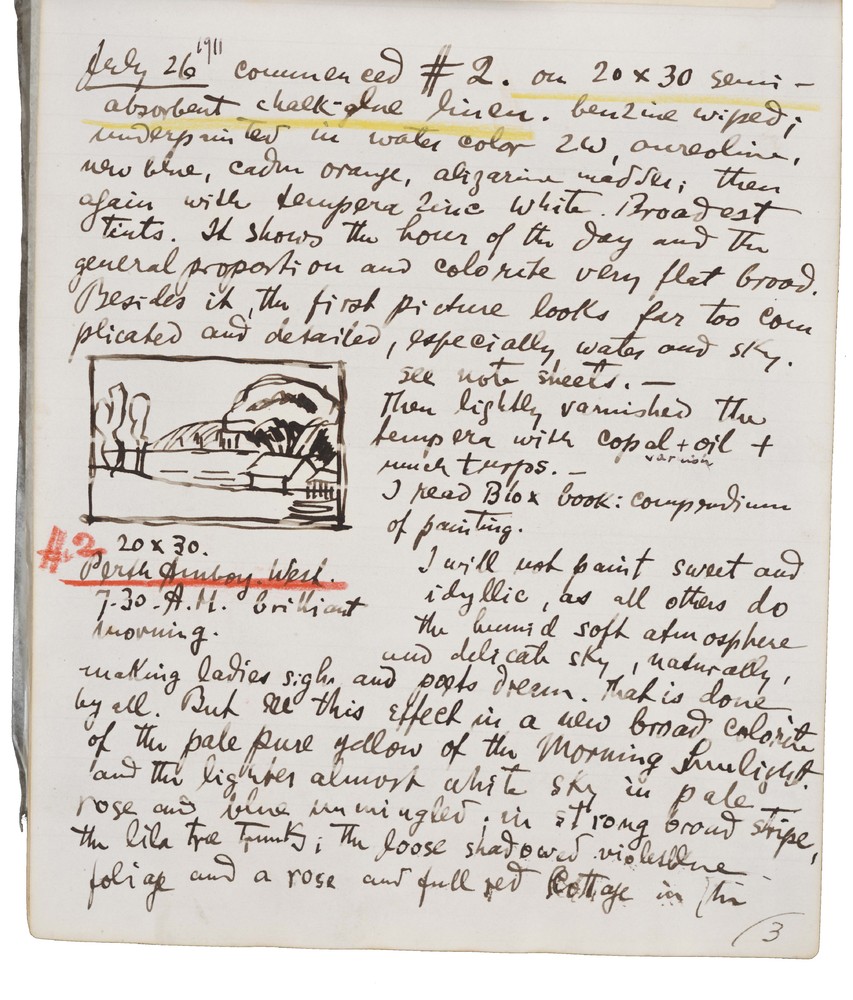 July 26 1911 commenced #2. on 20 x 30 semi-
absorbent chalk-glue linen. benzine wiped;
underpainted in water color ZW, aureoline,
new blue, cadm orange, alizarine madder; then
again with tempera Zinc White. Broadest
tints. It shows the hour of the day and the
general proportion and colorite very flat broad.
Besides it, the first picture looks far too com
plicated and detailed, especially water and sky.
see note sheets. —
Then lightly varnished the
tempera with copal + oil +
varnish
much turps. —
I read Blox book: compendium
of painting.
#2 20 x 30.
Perth Amboy. West.
7-30-A.M. brilliant
morning.
I will not paint sweet and
idyllic, as all others do
the humid soft atmosphere
and delicate sky, naturally,
making ladies sigh and poets dream. That is done
by all. But see this effect in a new broad colorite
of the pale pure yellow of the Morning Sunlight.
and the lighter almost white sky in pale
rose and blue unmingled; in strong broad stripe,
the lila tree trunks; the loose shadowed violetblue
foliage and a rose and full red Cottage in the
3